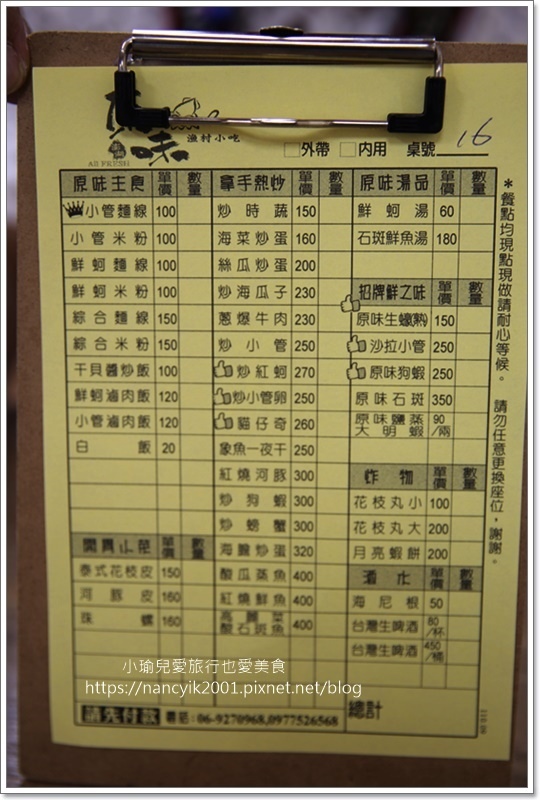 原味
漁村小吃
All FRESH
□外帶 □內用 桌號 16
原味主食 單價 數量
小管麵線 100
小管米粉 100
鮮蚵麵線 100
鮮蚵米粉 100
綜合麵線 150
綜合米粉 150
干貝醬炒飯 100
鮮蚵滷肉飯 120
小管滷肉飯 120
白飯 20
開胃小菜 單價 數量
泰式花枝皮 150
河豚皮 160
珠螺 160
拿手熱炒 單價 數量
炒時蔬 150
海菜炒蛋 160
絲瓜炒蛋 200
炒海瓜子 230
蔥爆牛肉 230
炒小管 250
炒紅蚵 270
炒小管卵 250
貓仔奇 260
象魚一夜干 250
紅燒河豚 300
炒狗蝦 300
炒螃蟹 300
海膽炒蛋 320
酸瓜蒸魚 400
紅燒鮮魚 400
高麗菜酸石斑魚 400
原味湯品 單價 數量
鮮蚵湯 60
石斑鮮魚湯 180
招牌鮮之味 單價 數量
原味生蠔(熟) 150
沙拉小管 250
原味狗蝦 250
原味石斑 350
原味鹽蒸大明蝦 90/兩
炸物 單價 數量
花枝丸小 100
花枝丸大 200
月亮蝦餅 200
酒水 單價 數量
海尼根 50
台灣生啤酒 80/杯
台灣生啤酒 450/桶
總計
請先付款 電話:06-9270968,0977526568
*餐點均現點現做請耐心等候。 請勿任意更換座位,謝謝。
小瑜兒愛旅行也愛美食
https://nancyik2001.pixnet.net/blog